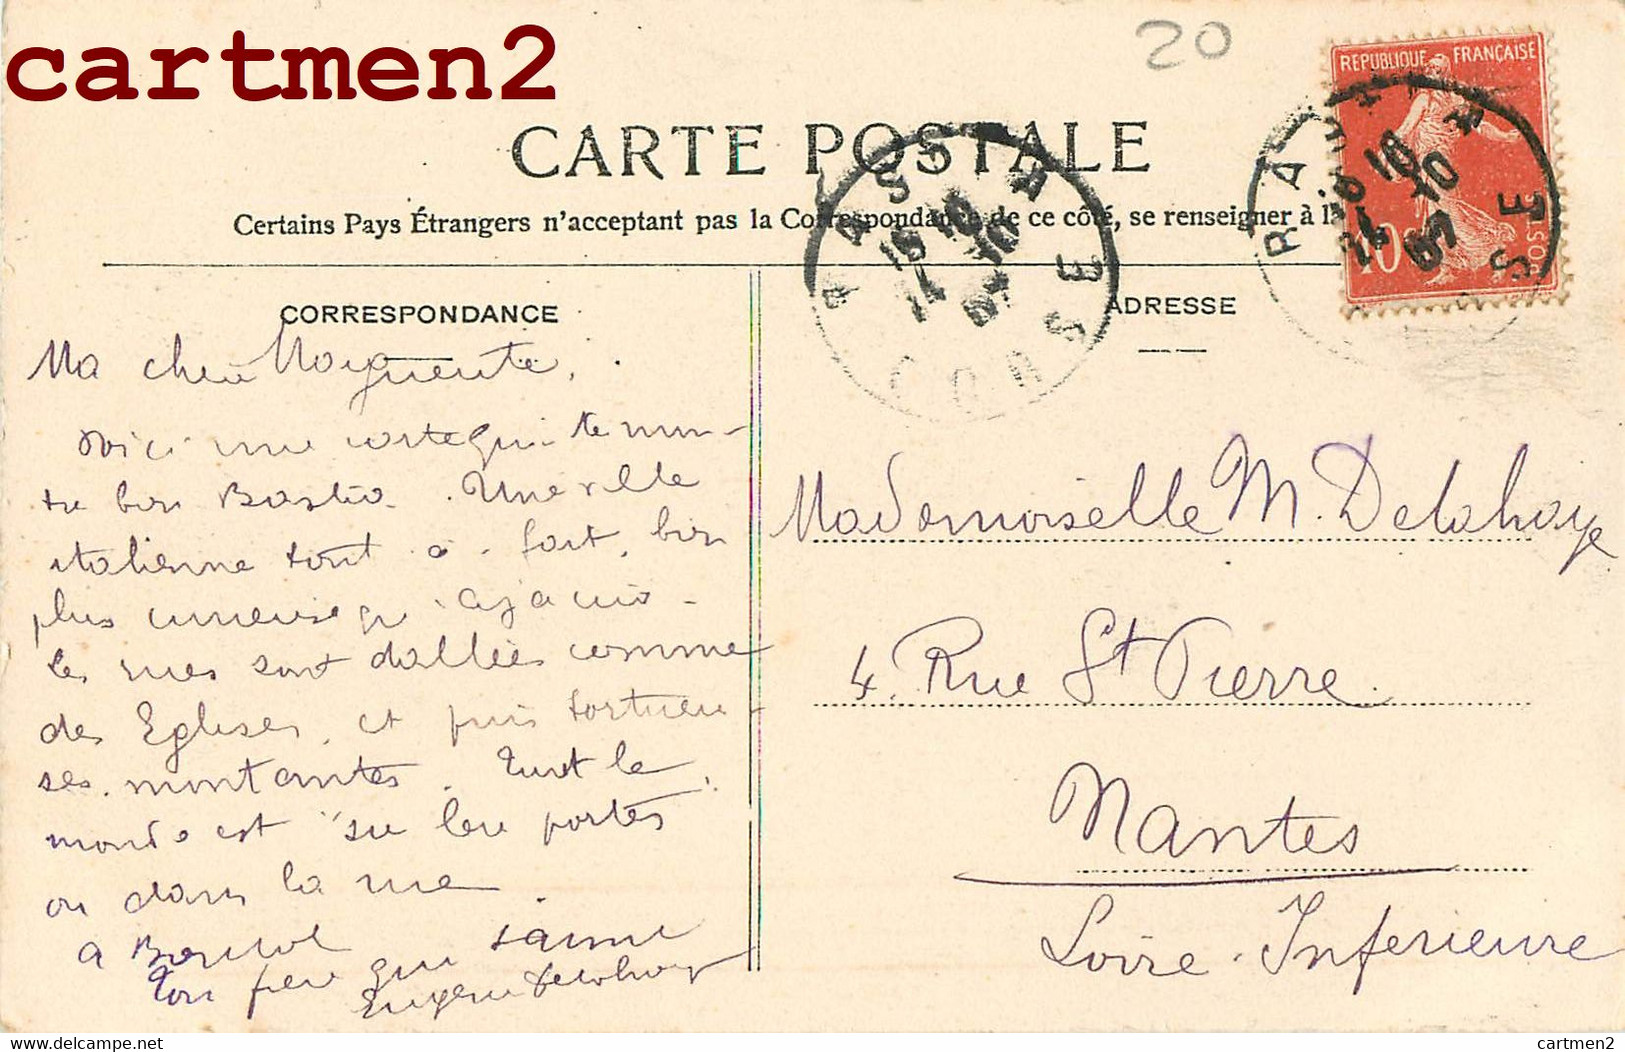 cartmen2
20
REPUBLIQUE FRANÇAISE
10c
POSTES
CARTE POSTALE
Certains Pays Étrangers n'acceptant pas la Correspondance de ce côté, se renseigner à l
CORRESPONDANCE
Ma chère Marguerite,
Voici une carte qui te mon-
tre bien Bastia. Une ville
italienne tout à fait, bien
plus curieuse qu'Ajaccio -
les rues sont dallées comme
des Eglises, et puis tortueu-
ses, montantes. Tout le
monde est sur les portes
ou dans la rue
a
Ton père qui t'aime
Eugène Delahaye
ADRESSE
Mademoiselle M. Delahaye
4. Rue St Pierre.
Nantes
Loire-Inférieure
CORSE
cartmen2.delcampe.net
cartmen2